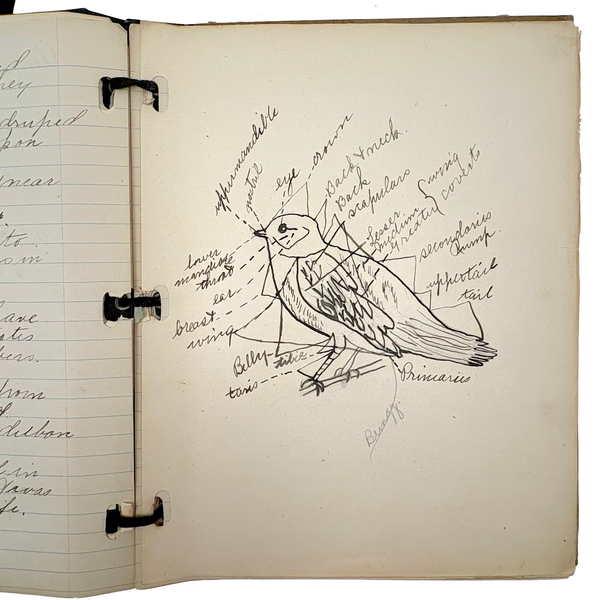 hey
druped
pon
near
to.
s in
ave
from
dubon
in
uppermandible
nostril
eye
crown
Back & neck.
Back
scapulars
Lesser
medium
Greater
wing
coverts
secondaries
rump.
uppertail
tail
Lower
mandible
throat
ear
breast
wing
Belly
tibia
tarsis
Primaries